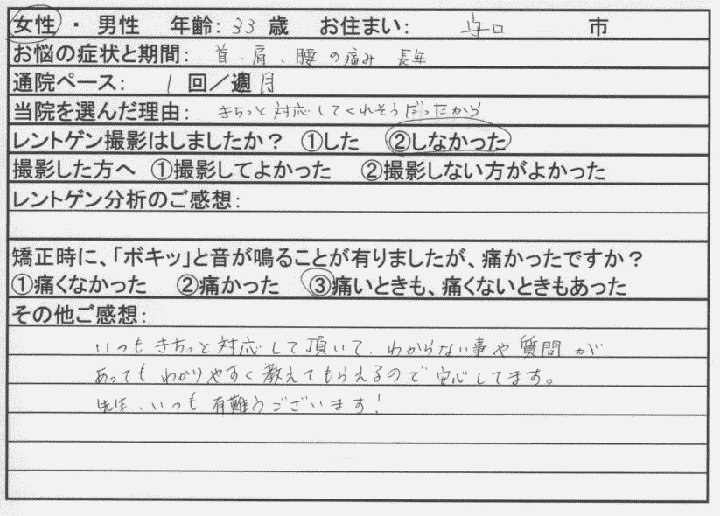 女性 ・ 男性 年齢: 33 歳 お住まい: 守口 市
お悩の症状と期間: 首、肩、腰の痛み 長年
通院ペース: 1 回/週 月
当院を選んだ理由: きちっと対応してくれそうだったから
レントゲン撮影はしましたか? ①した ②しなかった
撮影した方へ ①撮影してよかった ②撮影しない方がよかった
レントゲン分析のご感想:
矯正時に、「ボキッ」と音が鳴ることが有りましたが、痛かったですか?
①痛くなかった ②痛かった ③痛いときも、痛くないときもあった
その他ご感想:
いつもきちっと対応して頂いて、わからない事や質問が
あってもわかりやすく教えてもらえるので安心してます。
先生、いつも有難うございます!